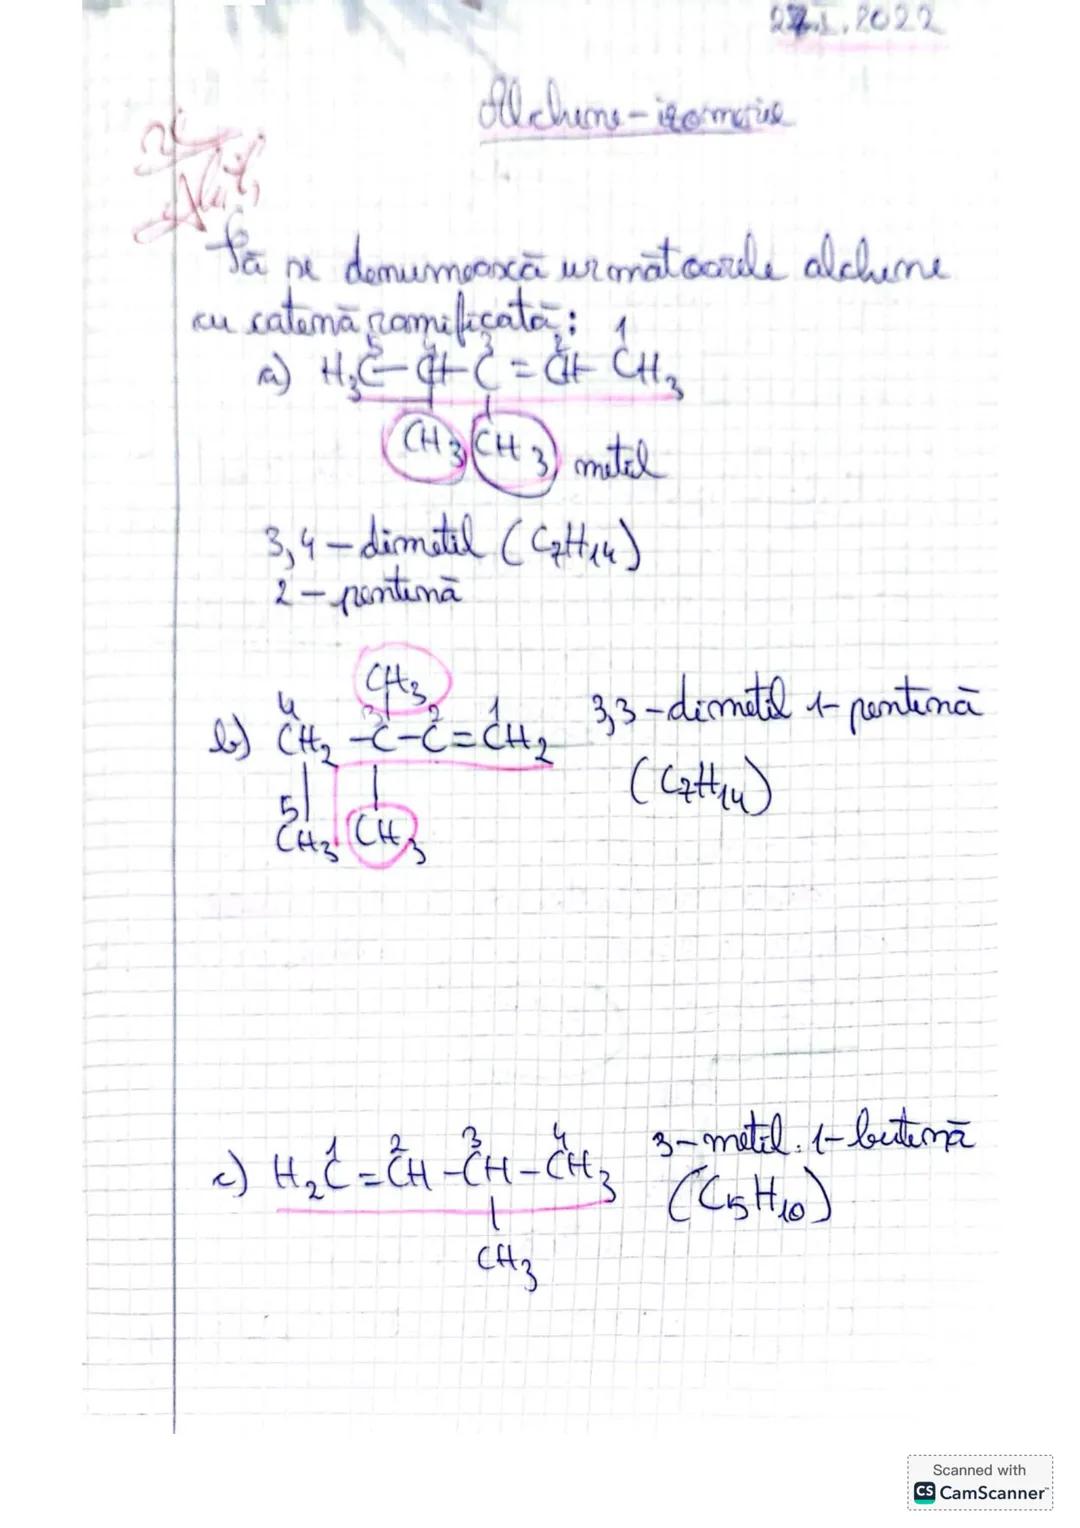 27.I.2022
Alchene-izomerie
Să se denumească următoarele alchene
cu catenă ramificată:
5 4 3 2 1
a) H₃C-CH-C=CH-CH₃
CH₃ CH₃ metil
3,4-dimetil (C₇H₁₄)
2-pentenă
CH₃
4 3 2 1
b) CH₂-C-C=CH₂ 3,3-dimetil 1-pentenă
(C₇H₁₄)
5
CH₃ CH₃
1 2 3 4
c) H₂C=CH-CH-CH₃ 3-metil.1-butenă
(C₅H₁₀)
CH₃
Scanned with
CS CamScanner